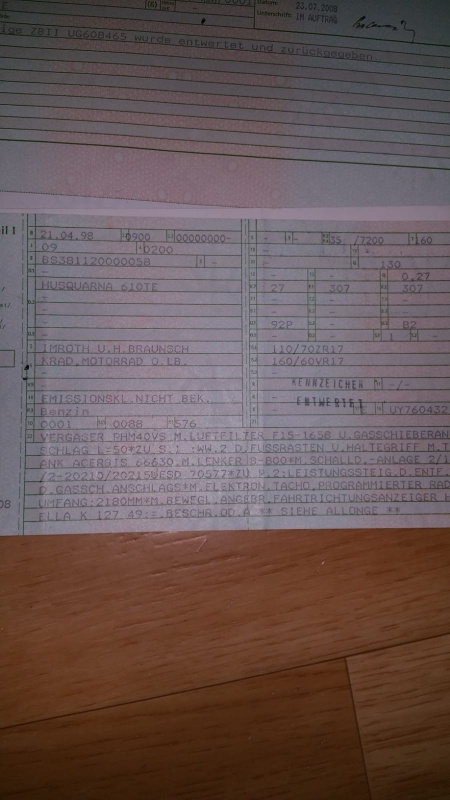 23.07.2009
IM AUFTRAG
ige ZBII UG608465 wurde entwertet und zurückgegeben
21.04.98 0900 00000000-
35 /7200 160
09 0200
BS381120000058 -
130
- 0,27
HUSQUARNA 610TE
27 307 307
92P 82
- 1 -
IMROTH U.H.BRAUNSCH
110/70ZR17
KRAD.MOTORRAD O.LB.
160/60VR17
KENNZEICHEN -/-
EMISSIONSKL.NICHT BEK.
ENTWERTET
Benzin
UY760432
0001 0088 576
VERGASER PHM40VS M.LUFTFILTER F15-1658 U.GASSCHIEBERAN
SCHLAG L=50*ZU S.1: :WW.2.D.FUSSRASTEN U.HALTEGRIFF
ANK ACERBIS 66630.M.LENKER B=800*M.SCHALLD.-ANLAGE 2/1
/2-20210/20215WESD 70577*ZU P.2:LEISTUNGSSTEIG.D.ENTF.
D.GASSCH.ANSCHLAGS*M.ELEKTRON.TACHO,PROGRAMMIERTER RAD
UMFANG:2180MM*M.BEWEGL.ANGEBR.FAHRTRICHTUNGSANZEIGER H
ELLA K 127 49:=.BESCHR.OD.A ** SIEHE ALLONGE **